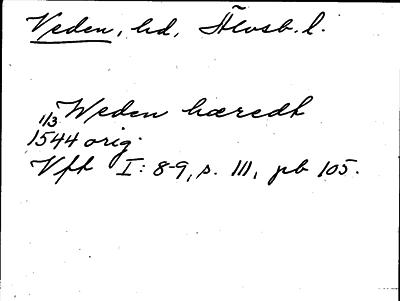 Veden, hd, Älvsb. l.
Weden hæredt
1/3
1544 orig.
Vft I: 8-9, s. 111, pb 105.